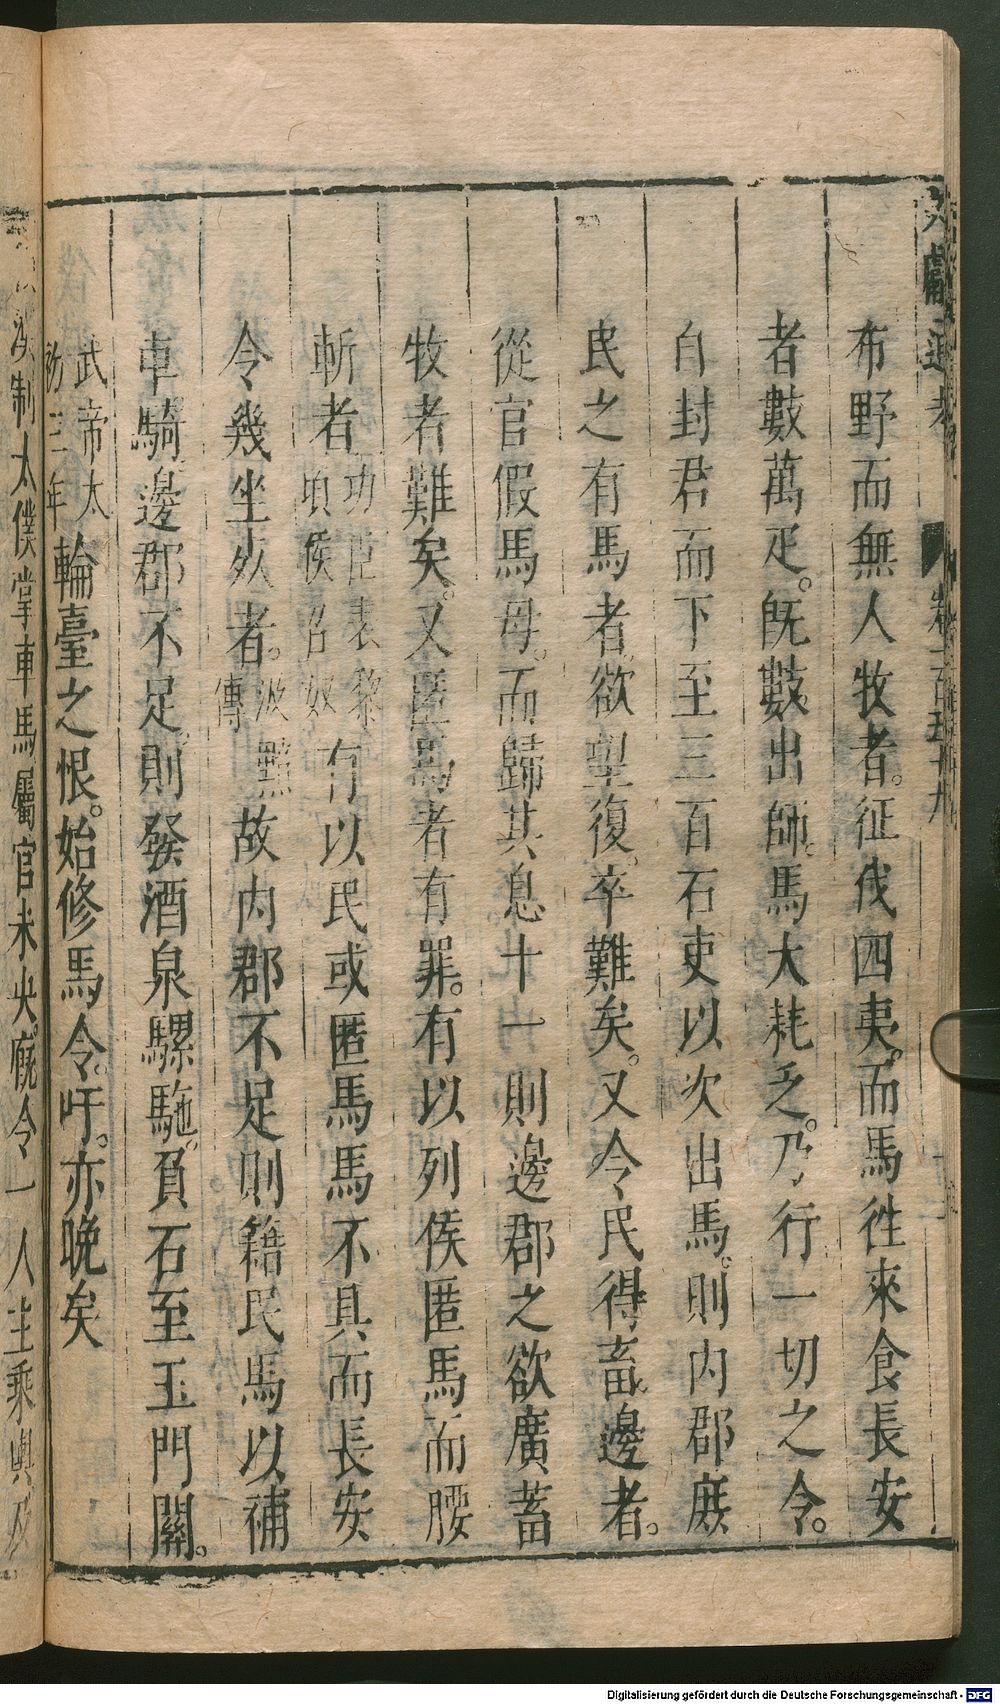 文獻通考 卷一百五十九
布野而無人牧者。征伐四夷。而馬徃來食長安
者數萬疋。旣數出師。馬大耗乏。乃行一切之令。
自封君而下至三百石吏以次出馬。則内郡庶
民之有馬者。欲望復。卒難矣。又令民得畜邊者。
從官假馬母。而歸其息十一則邊郡之欲廣蓄
牧者難矣。又匿馬者有罪。有以列侯匿馬而腰
斬者功臣表黎頃侯召奴有以民或匿馬馬不具而長安
令幾坐死者。汲黯傳故内郡不足則籍民馬以補
車騎邊郡不足。則發酒泉騾駞。負石至玉門關。
武帝太初三年輪臺之恨。始修馬令。吁。亦晚矣
漢制太僕掌車馬屬官未央。廐令一人主乘輿及
Digitalisierung gefördert durch die Deutsche Forschungsgemeinschaft - DFG